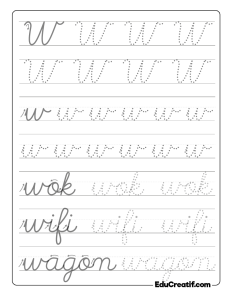 W W W W
W W W W
w w w w w w
w w w w w w
wok wok wok
wifi wifi wifi
wagon wagon
EduCreatif.com